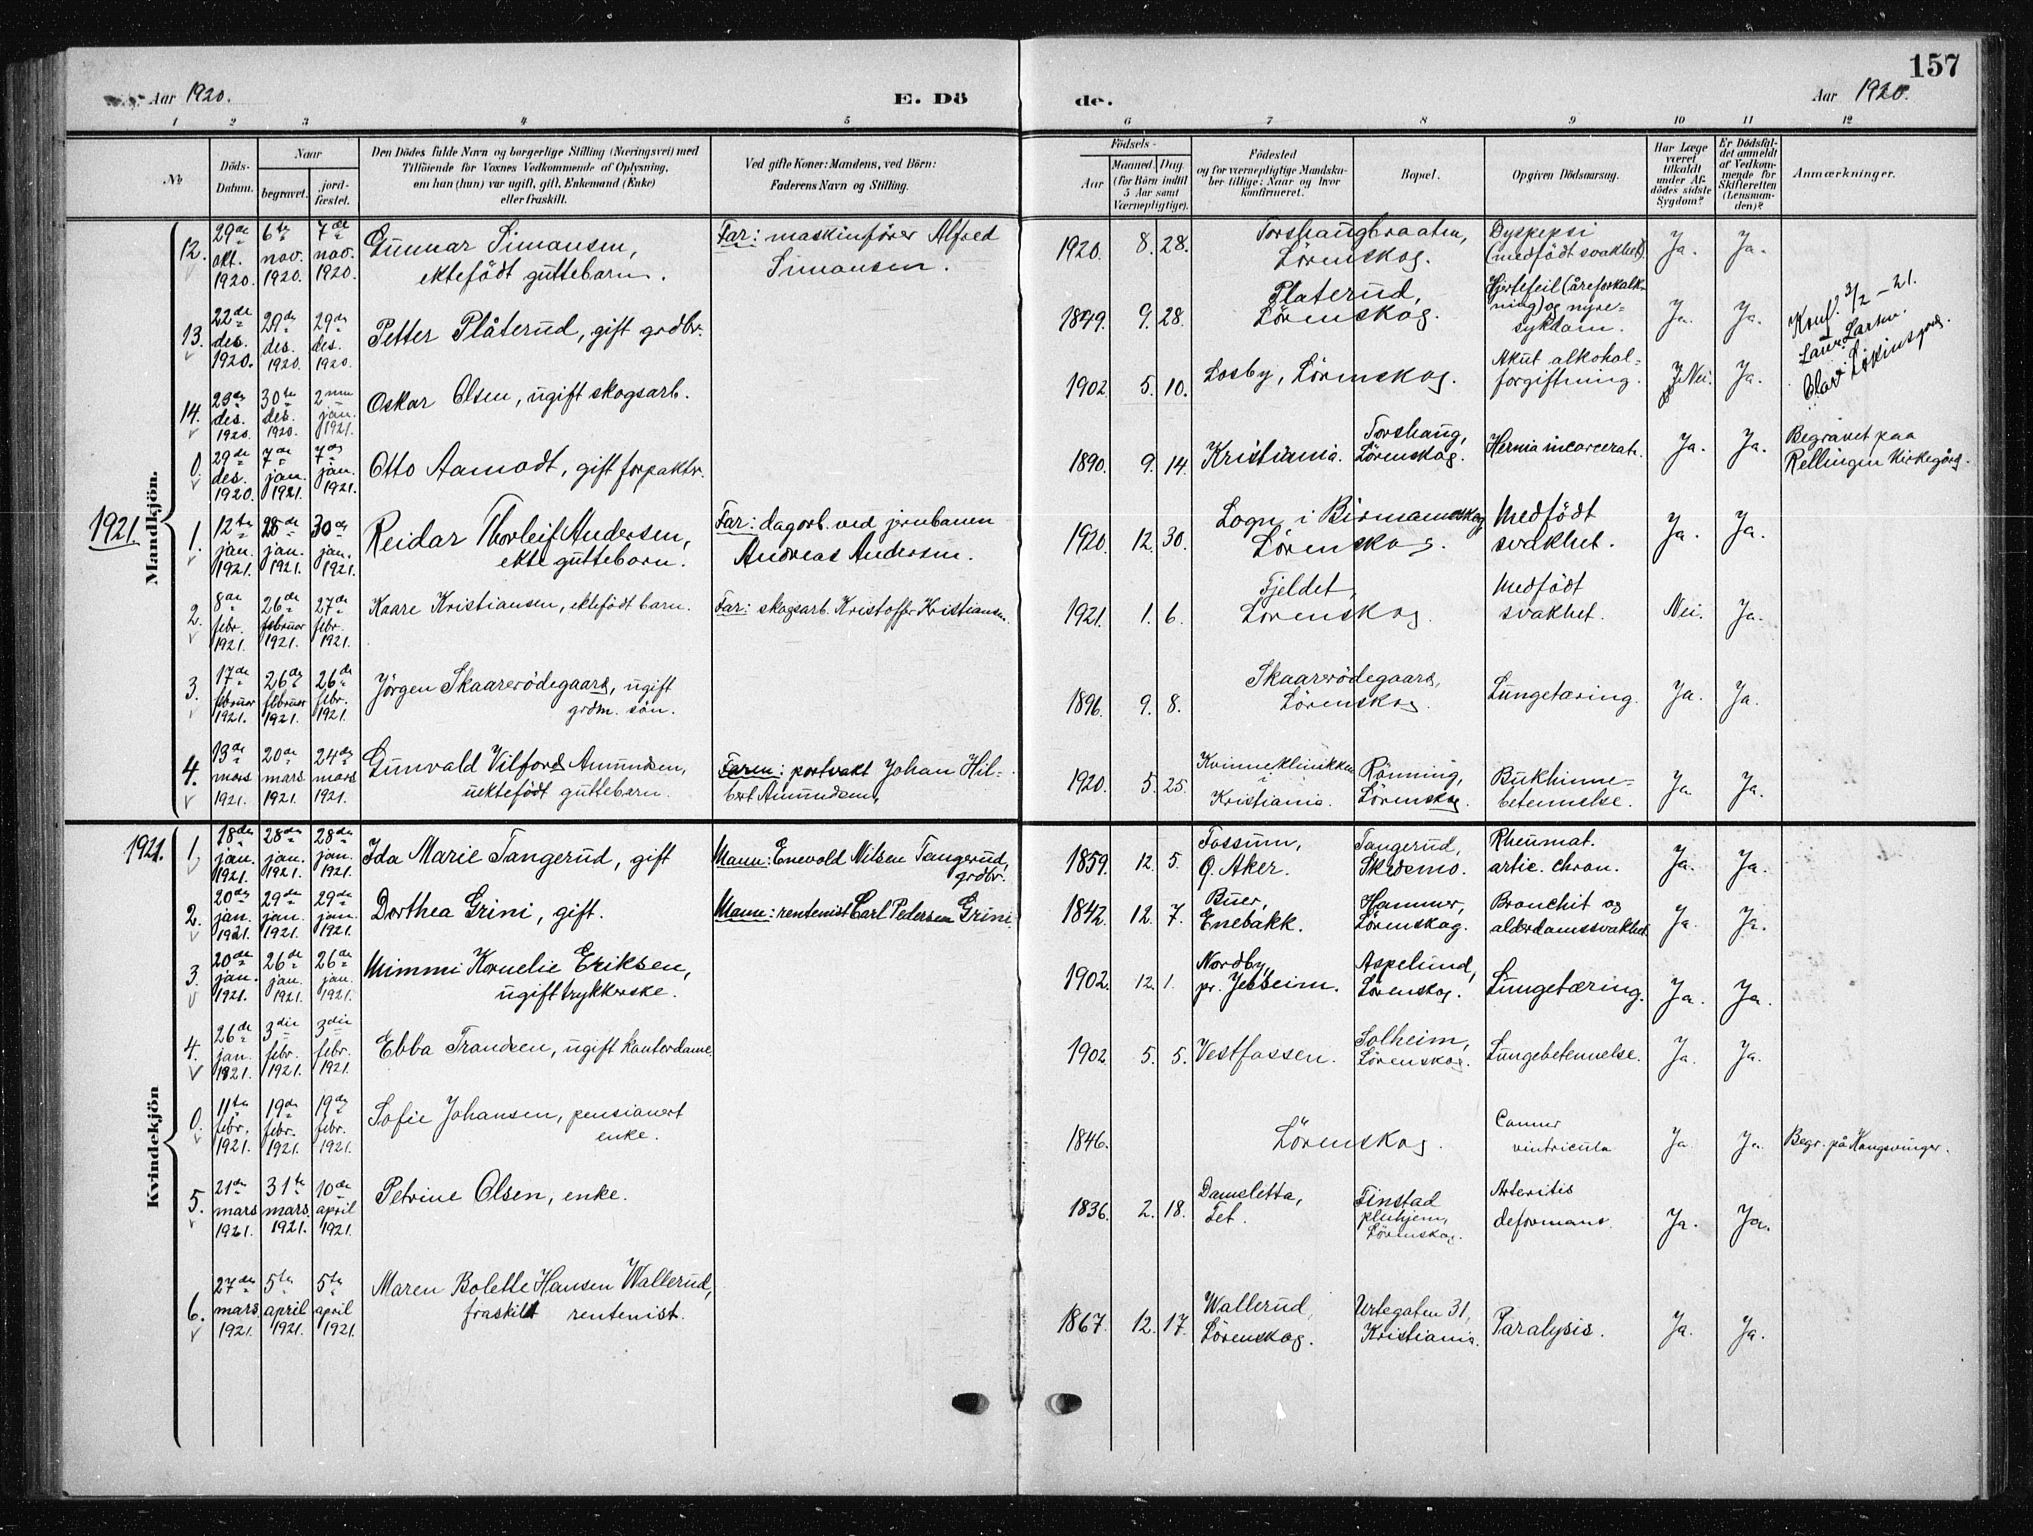 157
Aar 1920.
E. Dö
de.
Aar 1920.
1 2 3 4 5 6 7 8 9 10 11 12
No
Döds-Datum.
Naar
begravet.
jord-fæstet.
Den Dödes fulde Navn og borgerlige Stilling (Næringsvei) med
Tilföiende for Voxnes Vedkommende af Oplysning,
om han (hun) var ugift, gift, Enkemand (Enke)
eller fraskilt.
Ved gifte Koner: Mandens, ved Börn:
Faderens Navn og Stilling.
Födsels-
Aar
Maaned. Dag.
(for Börn indtil
5 Aar samt
Værnepligtige).
Födested
og for værnepligtige Mandska-
ber tillige: Naar og hvor
konfirmeret.
Bopæl.
Opgiven Dödsaarsag.
Har Læge
været
tilkaldt
under Af-
dödes sidste
Sygdom?
Er Dödsfal-
det anmeldt
af Vedkom-
mende for
Skifteretten
(Lensman-
den)?
Anmærkninger.
Mandkjön.
12. 29de okt. 1920. 6te nov. 1920. 7de nov. 1920. Gunnar Simonsen, ektefödt guttebarn. Far: maskinförer Alfred Simonsen. 1920. 8. 28. Torshaugbraaten, Lörenskog. Dyspepsi (medfödt svakhet). Ja. Ja.
13. 22de des. 1920. 29de des. 1920 29de des. 1920. Petter Plåterud, gift grdbr. 1849. 9. 28. Platerud, Lörenskog. Hjertefeil (åreforkalk-ning) og nyre-sykdom. Ja. Ja. Konf. 3/2 - 21.
14. 23de des. 1920. 30te des. 1920. 2nen jan. 1921. Oskar Olsen, ugift skogsarb. 1902. 5. 10. Losby, Lörenskog. Akut alkohol-forgiftning. Nei. Ja.
0. 29de des. 1920. 7de jan. 1921. 7de jan. 1921. Otto Aamodt, gift forpaktr. 1890. 9. 14. Kristiania. Torshaug, Lörenskog. Hernia incarcerat. Ja. Ja. Begravet paa Rellingen kirkegårg.
1921
1. 12te jan. 1921. 28de jan. 1921. 30de jan. 1921. Reidar Thorleif Andersen, ekte guttebarn. Far: dagarb. ved jernbanen Andreas Andersen. 1920. 12. 30. Logn i Lörenskog. Medfödt svakhet. Ja. Ja.
2. 8de febr. 1921. 26de februar 1921. 27de febr. 1921. Kaare Kristiansen, ektefödt barn. Far: skogsarb. Kristoffer Kristiansen. 1921. 1. 6. Fjeldet, Lörenskog. Medfödt svakhet. Nei. Ja.
3. 17de februar 1921. 26de februar 1921. 26de febr. 1921. Jörgen Skaarerödegaard, ugift grdm. sön. 1896. 9. 8. Skaarerödegaard, Lörenskog. Lungetæring. Ja. Ja.
4. 13de mars 1921. 20de mars 1921. 24de mars 1921. Gunvald Vilford Amundsen, uektefödt guttebarn. Faren: portvakt Johan Hil-bert Amundsen, 1920. 5. 25. Kvinneklinikken i Kristiania. Rönning, Lörenskog. Bukhinne-betennelse. Ja. Ja.
Kvindekjön
1921.
1. 18de jan. 1921. 28de jan. 1921. 28de jan. 1921. Ida Marie Tangerud, gift Mann: Enevold Nilsen Tangerud, grdbr. 1859. 12. 5. Fossum, Ö. Aker. Tangerud, Skedsmo. Rheumat. artic. chron. Ja. Ja.
2. 20de jan. 1921. 29de jan. 1921. 29de jan. 1921. Dorthea Grini, gift. Mann: rentenist Carl Pedersen Grini. 1842. 12. 7. Buer, Enebakk. Hammer, Lörenskog. Bronchit og alderdomssvakhet. Ja. Ja.
3. 20de jan. 1921. 26de jan. 1921. 26de jan. 1921. Mimmi Kornelie Eriksen, ugift trykkerske. 1902. 12. 1. Nordby, pr. Jessheim. Aspelund, Lörenskog. Lungetæring. Ja. Ja.
4. 26de jan. 1921. 3die febr. 1921. 3die febr. 1921. Ebba Trondsen, ugift kontordame. 1902. 5. 5. Vestfossen. Solheim, Lörenskog. Lungebetennelse. Ja. Ja.
0. 11te febr. 1921. 19de febr. 1921. 19de febr. 1921. Sofie Johansen, pensionert enke. 1846. Lörenskog. ventricula Ja. Ja. Begr. på Kongsvinger.
5. 21de mars 1921. 31te mars 1921. 10de april 1921. Petrine Olsen, enke. 1836. 2. 18. Damsletta, Fet. Finstad pleihjem, Lörenskog. Arteritis deformans. Ja. Ja.
6. 27de mars 1921. 5te april 1921. 5te april 1921. Maren Bolette Hansen Wallerud, fraskilt rentenist. 1867. 12. 17. Wallerud, Lörenskog. Urtegaten 31, Kristiania. Paralysis. Ja. Ja.